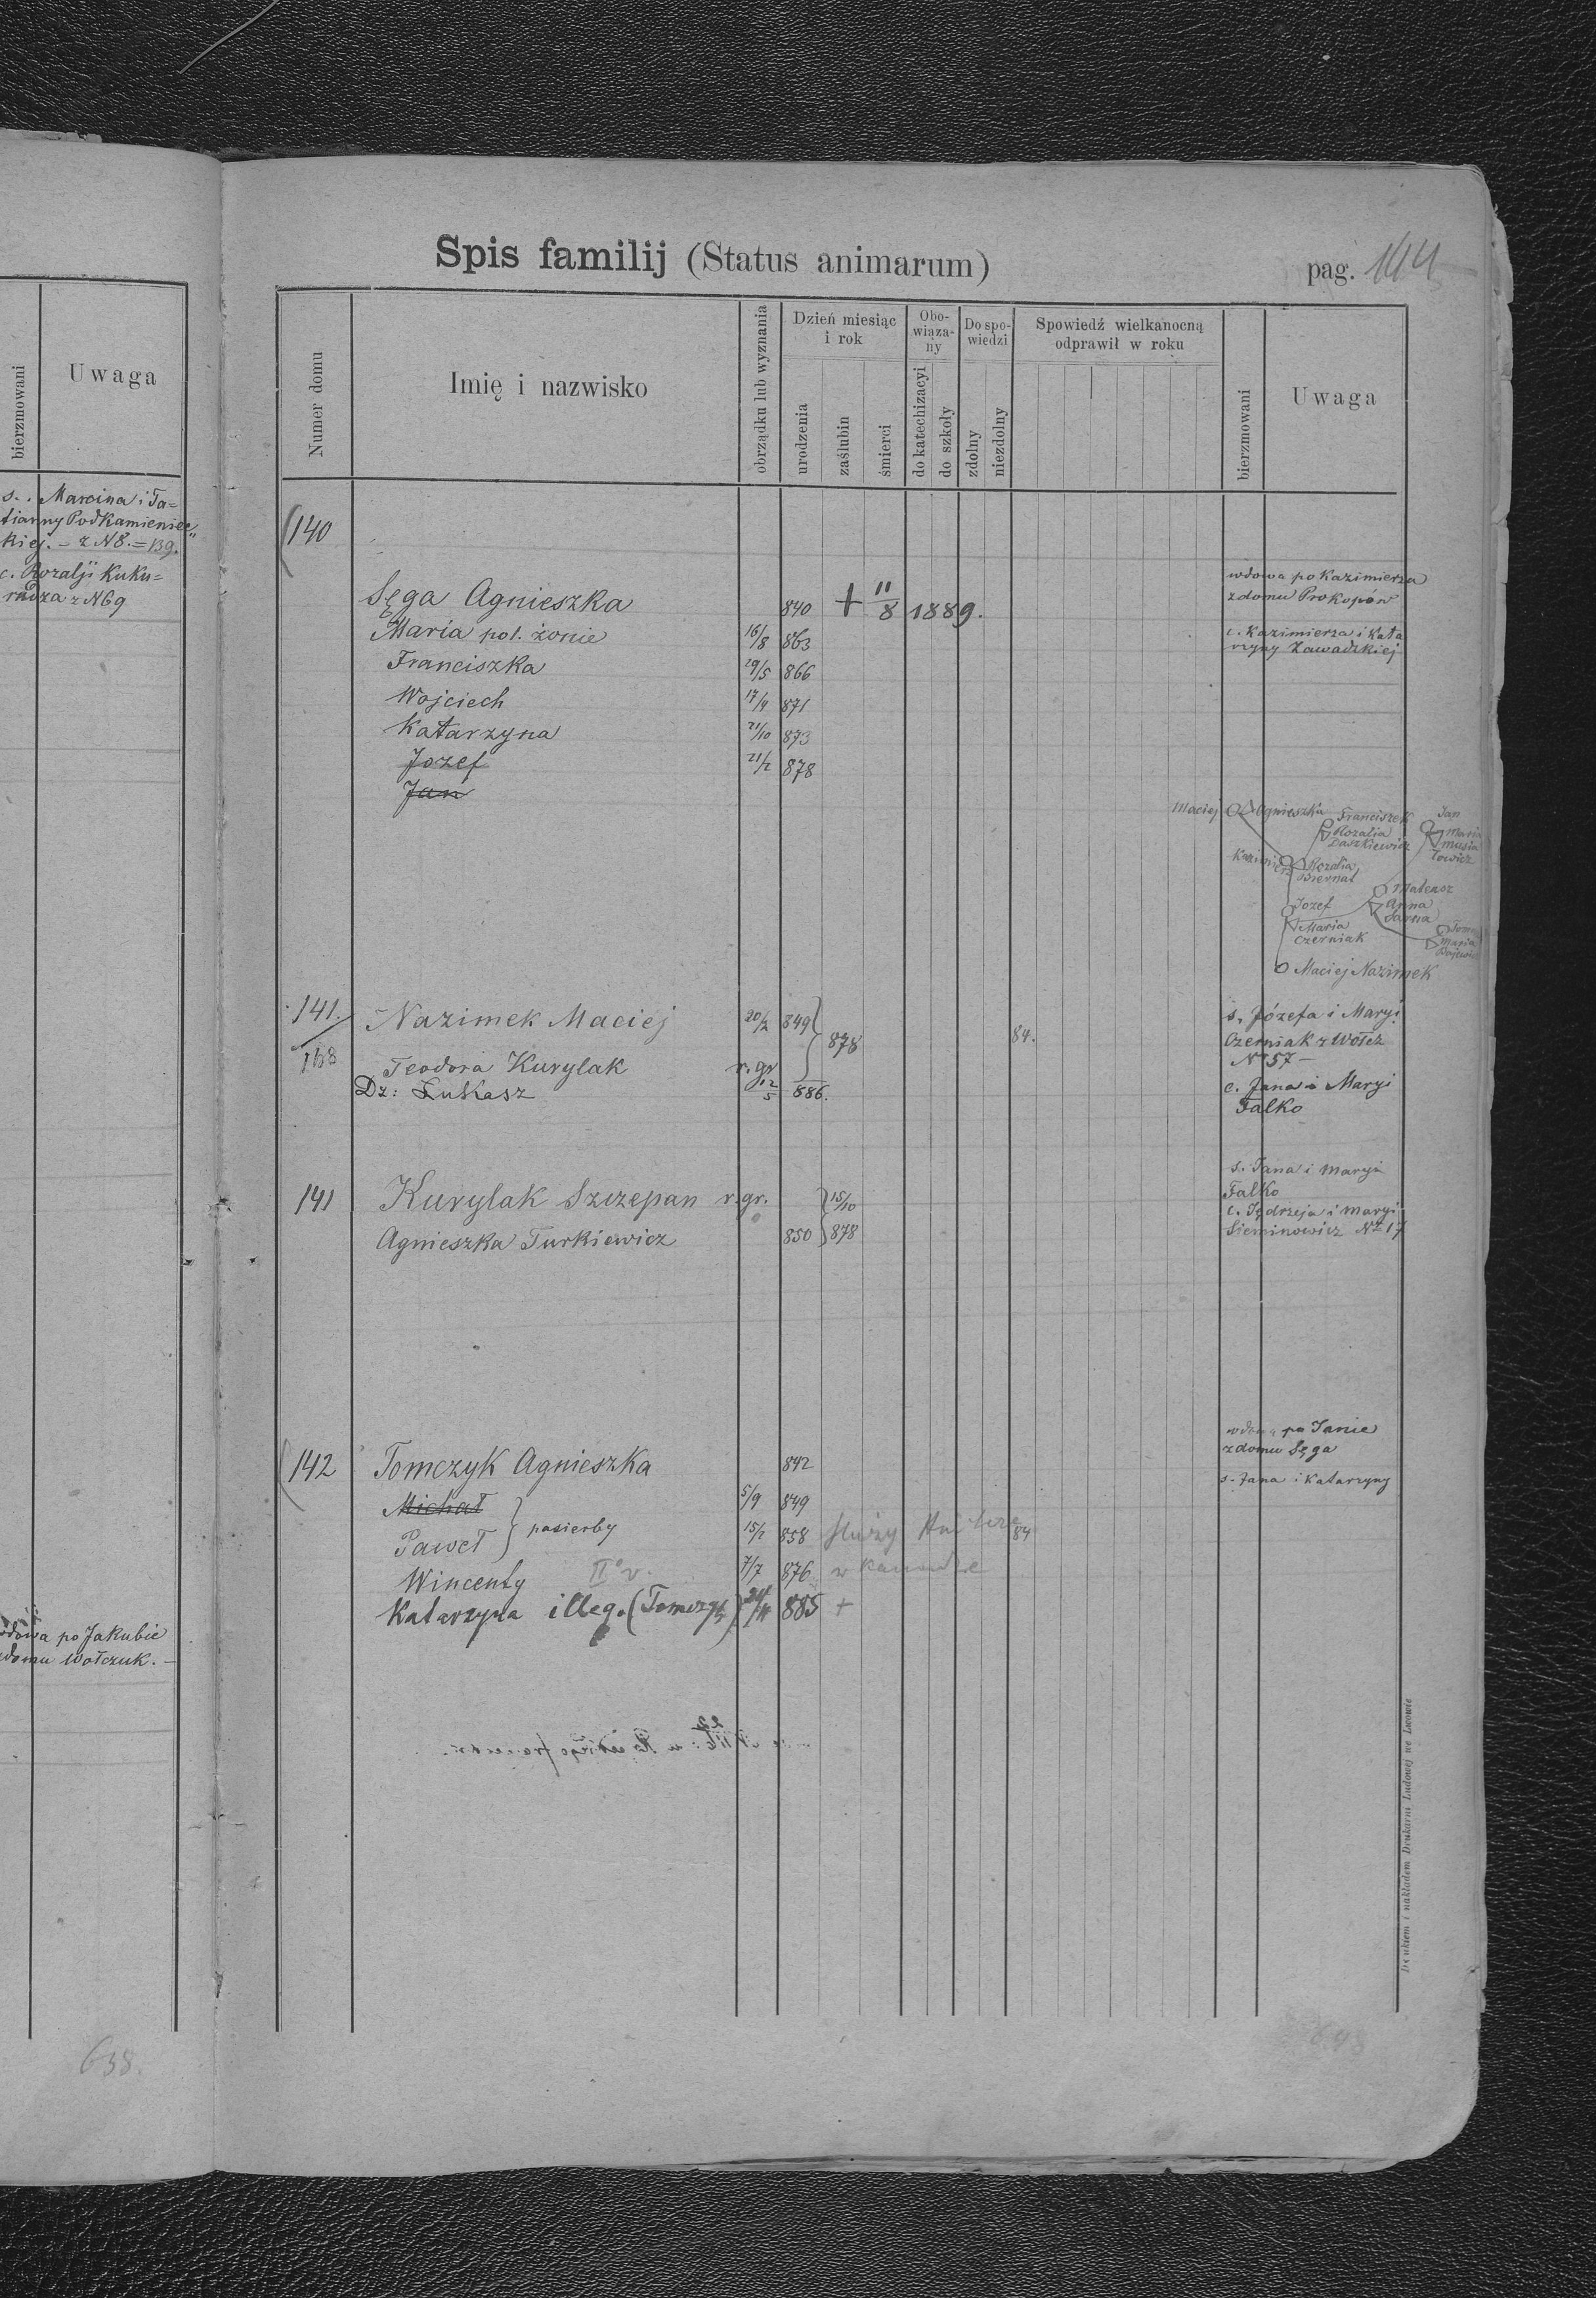 bierzmowani
Uwaga
s. Marcina i Ta=
tianny Podkamieniec„
kiej. – z N 8. = 139.
c. Rozalji Kuku=
rudza z N 69
wdowa po Jakubie
zdomu Wołczuk. –
638.
Spis familij (Status animarum)
pag. 144
Numer domu
Imię i nazwisko
obrządku lub wyznania
Dzień miesiąc i rok
urodzenia
zaślubin
śmierci
Obo-
wiąza-
ny
do katechizacyi
do szkoły
Do spo-
wiedzi
zdolny
niezdolny
Spowiedź wielkanocną
odprawił w roku
bierzmowani
Uwaga
140
Sęga Agnieszka 840 + 11/8 1889.
wdowa po Kazimierza
zdomu Prokopów
Maria poł. żonie 16/8 863
c. Kazimierza i Kata
rzyny Zawadzkiej
Franciszka 29/5 866
Wojciech 17/9 871
Katarzyna 21/10 873
Jozef 21/2 878
Jan
Maciej Agnieszka
Franciszek
Rozalia
Daszkiewicz
Jan
Maria
Musia
łowicz
Kazimierz Rozalia
Biernat
Mateusz
Anna
Sarna
Jozef
Maria
Czerniak
Maria
Maciej Nazimek
141. Nazimek Maciej 20/2 849 878 84.
s. Józefa i Maryi
Czerniak z Wołcz
N 257 –
168 Teodora Kurylak r. gr
c. Jana i Maryi
Falko
Dz: Łukasz 12/5 886.
141 Kurylak Szczepan r. gr. 15/10
s. Jana i Maryi
Falko
Agnieszka Turkiewicz 850 878
c. Jędrzeja i Maryi
Sieminowicz Nr 17
142 Tomczyk Agnieszka 842
wdowa po Janie
zdomu Sęga
Michał 5/9 849
s. Jana i Katarzyny
pasierby
Paweł 15/1 858 służy 84
Wincenty II° v. 7/7 876 w Kanadzie
Katarzyna illeg. (Tomczyk) 24/11 885 +
Drukiem i nakładem Drukarni Ludowej we Lwowie